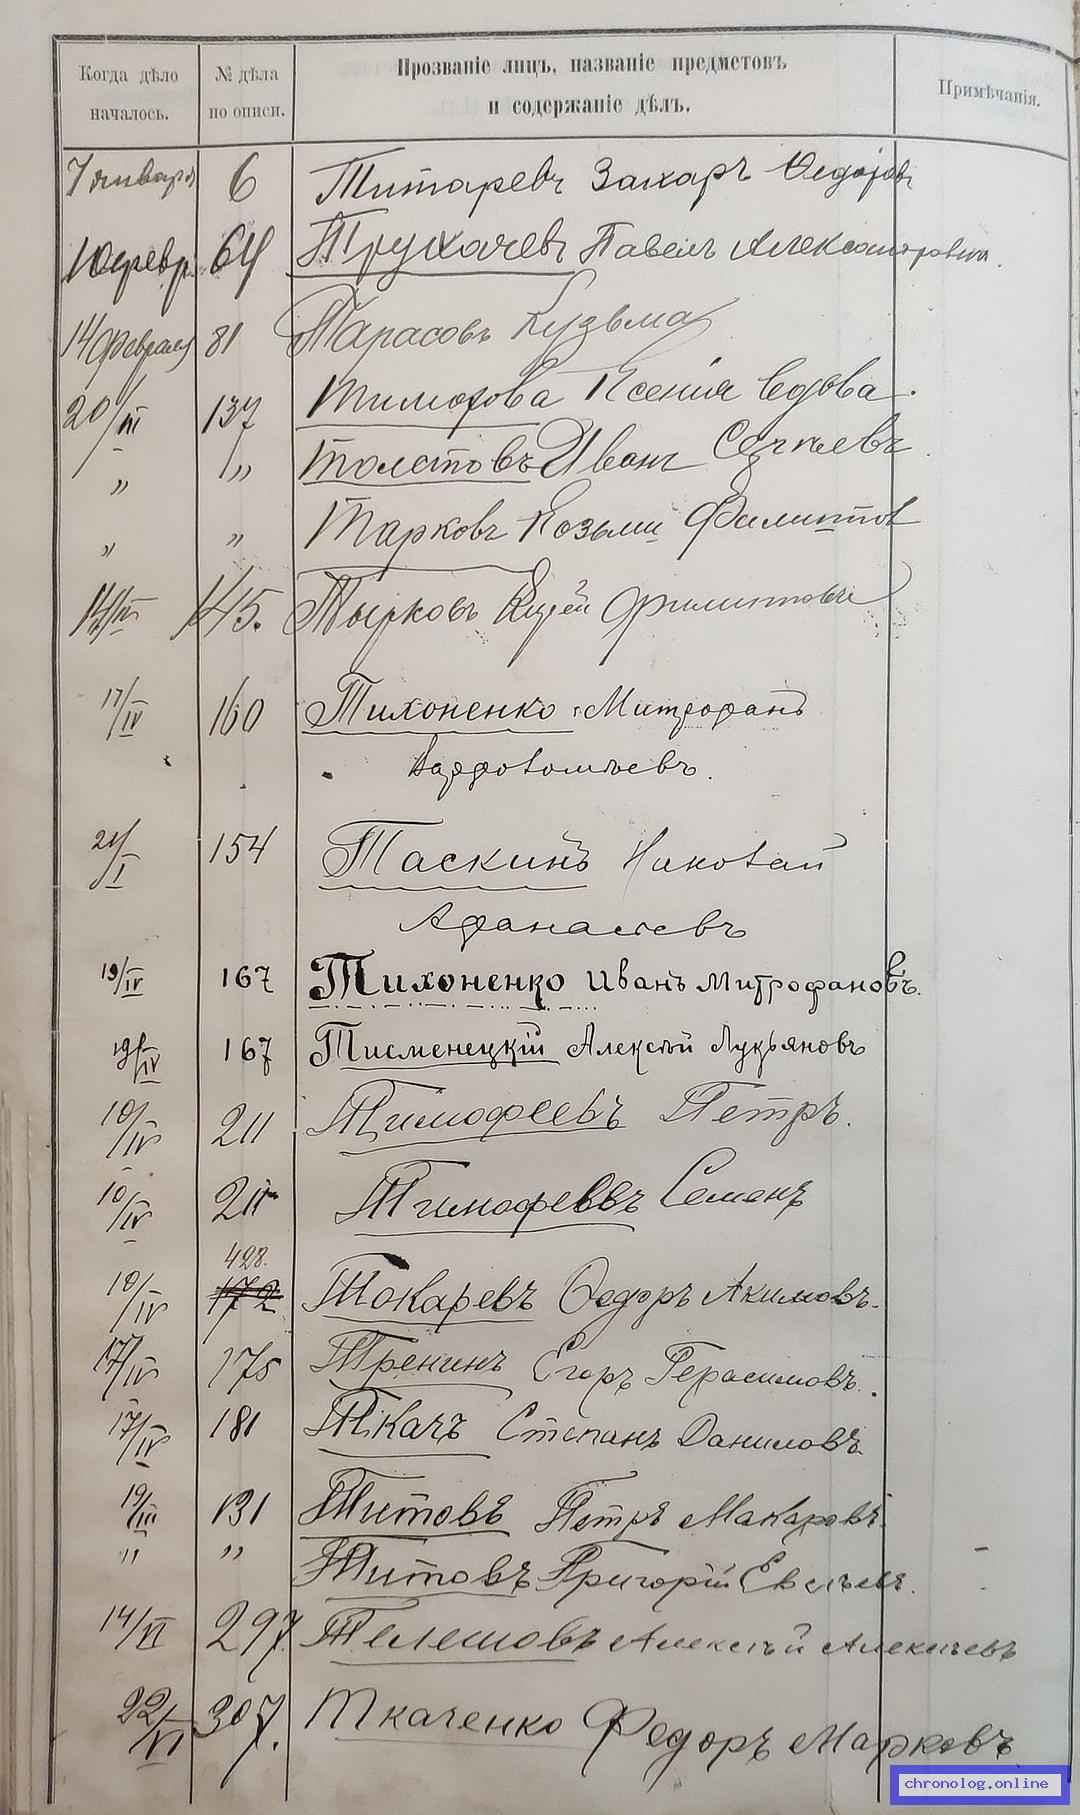 Когда дѣло № дѣла Прозваніе лицъ, названіе предметовъ Примѣчанія.
началось. по описи. и содержаніе дѣлъ.
7 января 6 Титаревъ Захаръ Ѳедоровъ
1 февр. 64 Трухачевъ Павелъ Александровъ
14 февраля 81 Тарасовъ Кузьма
20/III 137 Тимофова Ксенія вдова.
„ „ Толстовъ Иванъ Сергѣевъ
„ „ Тарковъ Козьми Филиппов
14/III 145. Тырковъ Филипповъ
17/IV 160 Тихоненко Митрофанъ
Варфоломѣевъ.
21/I 154 Таскинъ Николай
Афанасьевъ
19/IV 167 Тихоненко Иванъ Митрофановъ.
19/IV 167 Тисменецкій Алексѣй Лукьяновъ
10/IV 211 Тимофеевъ Петръ.
10/IV 211 Тимофеевъ Семенъ
428.
10/IV 172 Токаревъ Ѳедоръ Акимовъ.
17/IV 175 Тренинъ Егоръ Герасимовъ.
17/IV 181 Ткачъ Степанъ Даниловъ
19/III 131 Титовъ Петръ Макаровъ.
„ „ Титовъ Григорій
14/VI 297. Телешовъ Алексѣй Алексѣевъ
22/VI 307. Ткаченко Федоръ Марковъ
chronolog.online